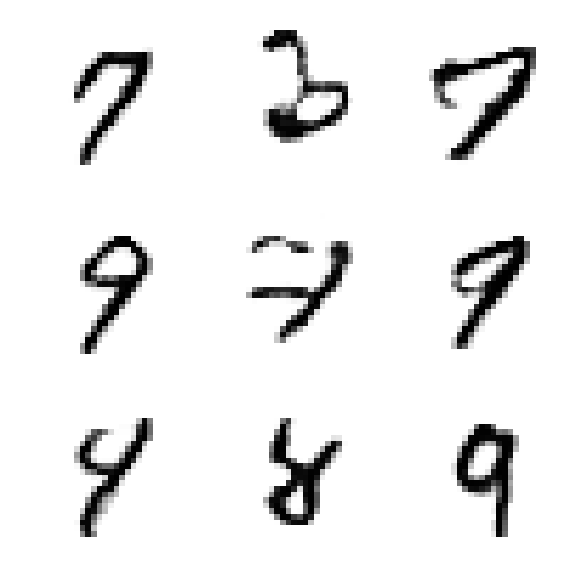 7 3 7
9 7 9
4 8 9